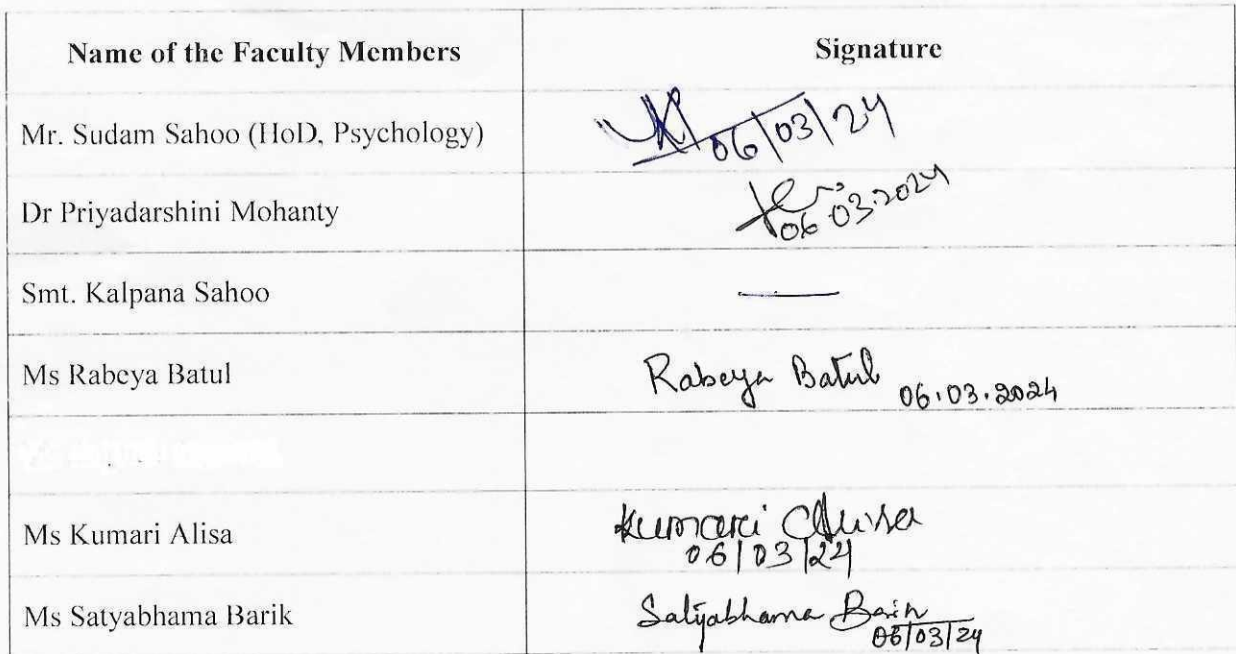 Name of the Faculty Members Signature
Mr. Sudam Sahoo (HoD, Psychology) 06/03/24
Dr Priyadarshini Mohanty 06.03.2024
Smt. Kalpana Sahoo
Ms Rabeya Batul Rabeya Batul 06.03.2024
Ms Kumari Alisa Kumari Alisa
06/03/24
Ms Satyabhama Barik Satyabhama Barik
06/03/24